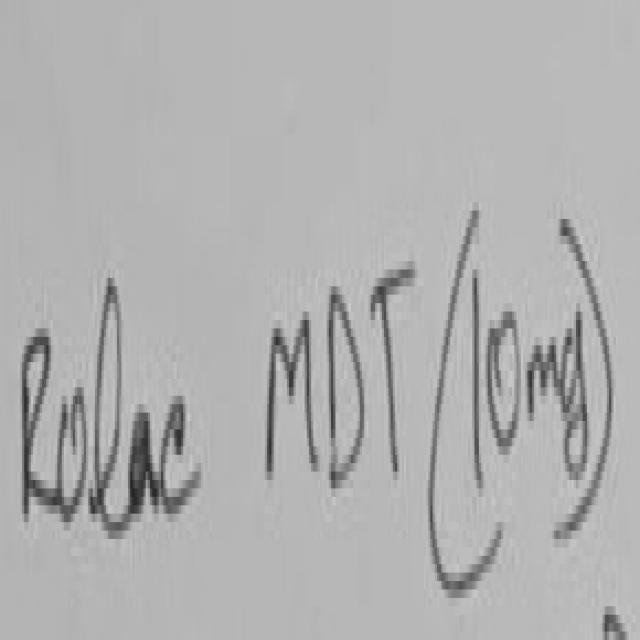 Rolac MDT (10mg)